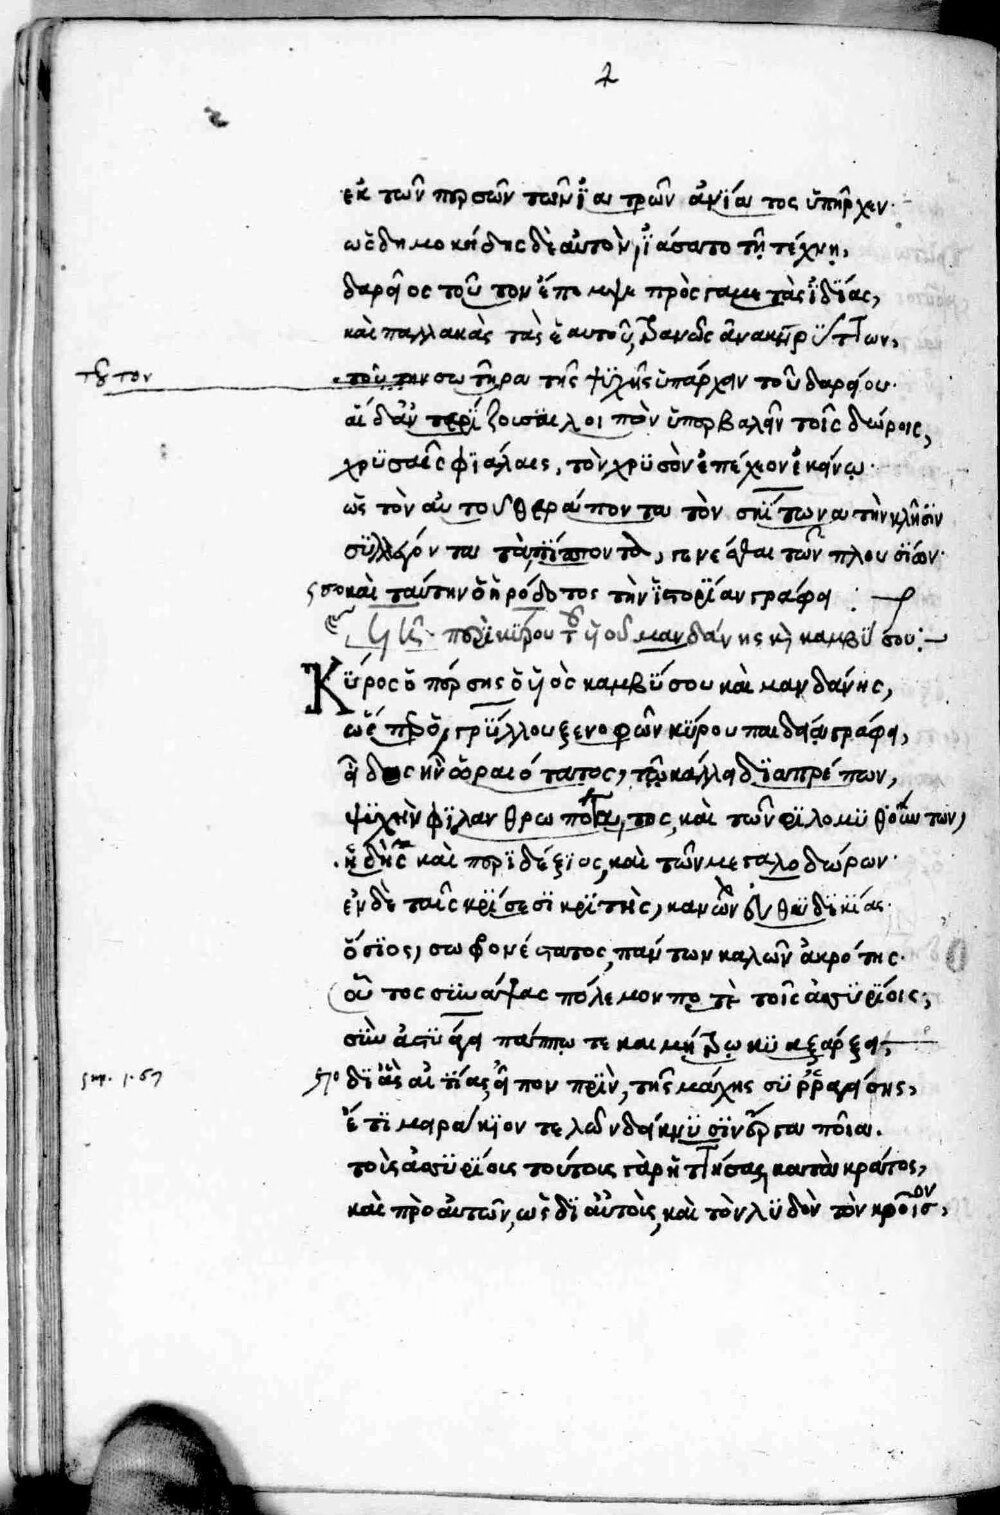 ἐκ τῶν περσῶν τῶν ἰατρῶν ἀνίατος ὑπῆρχεν·
ὡς δημοκήδης δὲ αὐτὸν ἰάσατο τῇ τέχνῃ,
δαρεῖος τοῦτον ἔπεμψε πρὸς γαμετὰς ἰδίας,
καὶ παλλακὰς τὰς ἑαυτοῦ,
τοῦτον
τοῦτον σωτῆρα τῆς ψυχῆς ὑπάρχειν τοῦ δαρείου·
αἱ δ' ἀντερίζουσαι λοιπὸν ὑπερβαλεῖν τοῖς δώροις,
χρυσαῖς φιάλαις, τὸν χρυσὸν ἐπέχεον ἐκείνῳ·
ὡς τὸν αὐτοῦ θεράποντα τὸν σκίτωνα τὴν κλῆσιν
συλλέγοντα τὰ πίπτοντα, γενέσθαι τῶν πλουσίων·
καὶ ταύτην ὁ ἡρόδοτος τὴν ἱστορίαν γράφει :
περὶ κύρου τοῦ υἱοῦ μανδάνης καὶ καμβύσου :
Κῦρος ὁ πέρσης ὁ υἱὸς καμβύσου καὶ μανδάνης,
ὡς ὁ γρύλλου ξενοφῶν κύρου παιδείᾳ γράφει,
εἶδος ἦν ὡραιότατος, τῷ κάλλει διαπρέπων,
ψυχὴν φιλανθρωπότατος, καὶ τῶν φιλομυθούντων,
ἡδὺς καὶ περιδέξιος, καὶ τῶν μεγαλοδώρων·
ἐν δὲ ταῖς κρίσεσι κριτὴς, κανὼν εὐθυδικίας·
ὅσιος, σωφρονέστατος, πάντων καλῶν ἀκρότης·
οὗτος συνάψας πόλεμον ποτὲ τοῖς ἀσσυρίοις,
σὺν ἀστυάγει πάππῳ τε καὶ κυαξάρει,
δι' ἃς αἰτίας εἶπον πρὶν, τῆς μάχης συρραγείσης,
ἔτι μειράκιον τελῶν
τοῖς ἀσσυρίοις τούτοις γὰρ ἡττήσας κατὰ κράτος,
καὶ πρὸ αὐτῶν, ὡς δι' αὐτοὺς, καὶ τὸν λυδὸν τὸν κροῖσον,